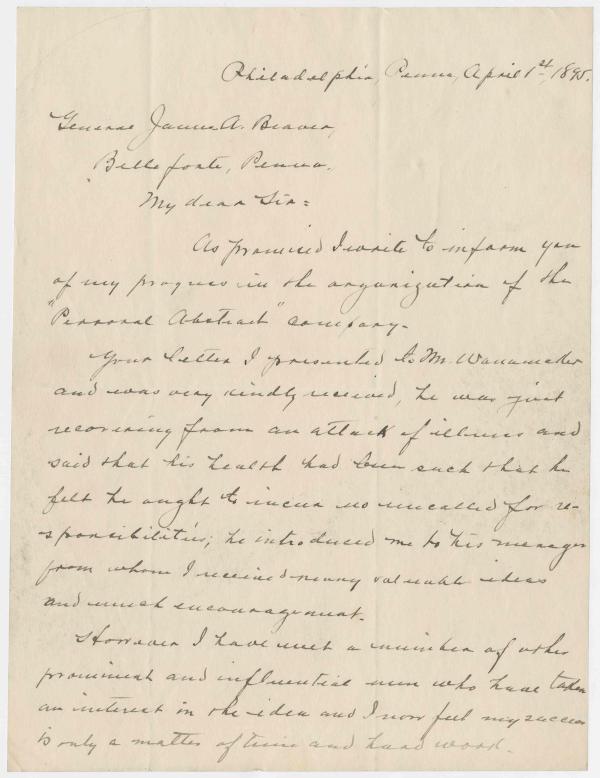 Philadelphia, Penna, April 1st, 1895.
General James A. Beaver,
Bellefonte, Penna.
My dear Sir=
As promised I write to inform you
of my progress in the organization of the
"Personal Abstract" company.
Your letter I presented to Mr. Wanamaker
and was very kindly received, he was just
recovering from an attack of illness and
said that his health had been such that he
felt he ought to incur no uncalled for re-
sponsibilities; he introduced me to his manager
from whom I received many valuable ideas
and much encouragement.
However I have met a number of other
prominent and influential men who have taken
an interest in the idea and I now feel my success
is only a matter of time and hard work.